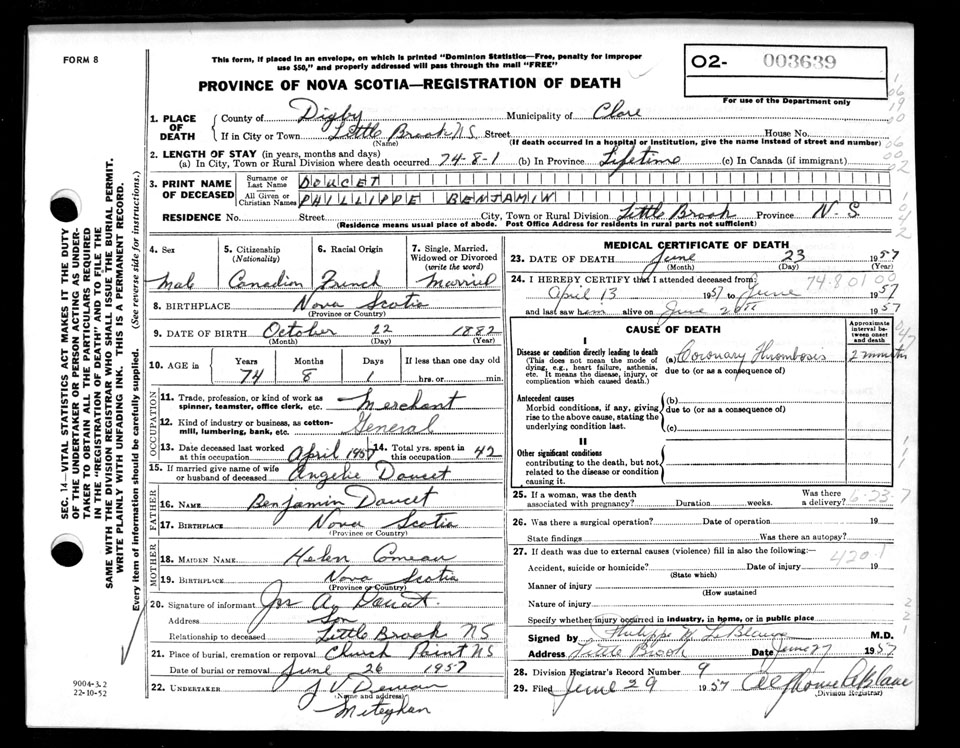 FORM 8
This form, if placed in an envelope, on which is printed "Dominion Statistics—Free, penalty for improper
use $50," and properly addressed will pass through the mail "FREE"
O2- 003639
For use of the Department only
PROVINCE OF NOVA SCOTIA—REGISTRATION OF DEATH
1. PLACE OF DEATH { County of Digby Municipality of Clare
If in City or Town Little Brook NS Street House No.
(Name) (If death occurred in a hospital or institution, give the name instead of street and number)
2. LENGTH OF STAY (in years, months and days)
(a) In City, Town or Rural Division where death occurred 74-8-1 (b) In Province Lifetime (c) In Canada (if immigrant)
3. PRINT NAME OF DECEASED { Surname or Last Name DOUCET
All Given or Christian Names PHILLIPPE BENJAMIN
RESIDENCE No. Street City, Town or Rural Division Little Brook Province N.S.
(Residence means usual place of abode. Post Office Address for residents in rural parts not sufficient)
4. Sex 5. Citizenship (Nationality) 6. Racial Origin 7. Single, Married, Widowed or Divorced (write the word)
Male Canadian French Married
8. BIRTHPLACE Nova Scotia
(Province or Country)
9. DATE OF BIRTH October 22 1882
(Month) (Day) (Year)
10. AGE in { Years Months Days If less than one day old
74 8 1 hrs. or min.
OCCUPATION
11. Trade, profession, or kind of work as spinner, teamster, office clerk, etc. Merchant
12. Kind of industry or business, as cotton-mill, lumbering, bank, etc. General
13. Date deceased last worked at this occupation April 1957 14. Total yrs. spent in this occupation 42
15. If married give name of wife or husband of deceased Angelie Doucet
FATHER
16. NAME Benjamin Doucet
17. BIRTHPLACE Nova Scotia
(Province or Country)
MOTHER
18. MAIDEN NAME Helen Comeau
19. BIRTHPLACE Nova Scotia
(Province or Country)
20. Signature of informant Jos A. Doucet
Address Son
Relationship to deceased Little Brook NS
21. Place of burial, cremation or removal Church Point NS
Date of burial or removal June 26 1957
22. UNDERTAKER J V
(Name and address)
Meteghan
MEDICAL CERTIFICATE OF DEATH
23. DATE OF DEATH June 23 1957
(Month) (Day) (Year)
24. I HEREBY CERTIFY that I attended deceased from:
74-801 00
April 13 1957 to June 1957
and last saw him alive on June 1957
CAUSE OF DEATH
Approximate interval between onset and death
I
Disease or condition directly leading to death
(This does not mean the mode of dying, e.g., heart failure, asthenia, etc. It means the disease, injury, or complication which caused death.)
(a) Coronary Thrombosis 2 minutes
due to (or as a consequence of)
Antecedent causes
Morbid conditions, if any, giving rise to the above cause, stating the underlying condition last.
(b)
due to (or as a consequence of)
(c)
II
Other significant conditions
contributing to the death, but not related to the disease or condition causing it.
25. If a woman, was the death associated with pregnancy? Duration weeks. Was there a delivery? 6-23-7
26. Was there a surgical operation? Date of operation 19
State findings Was there an autopsy?
27. If death was due to external causes (violence) fill in also the following:—
420-1
Accident, suicide or homicide? Date of injury 19
(State which)
Manner of injury
(How sustained
Nature of injury
Specify whether injury occurred in industry, in home, or in public place
Signed by Philippe LeBlanc M.D.
Address Little Brook Date June 27 1957
28. Division Registrar's Record Number 9
29. Filed June 29 1957 Alphonse LeBlanc
(Division Registrar)
SEC. 14—VITAL STATISTICS ACT MAKES IT THE DUTY
OF THE UNDERTAKER OR PERSON ACTING AS UNDERTAKER TO OBTAIN ALL THE PARTICULARS REQUIRED
IN THE "REGISTRATION OF DEATH" AND TO FILE THE
SAME WITH THE DIVISION REGISTRAR WHO SHALL ISSUE THE BURIAL PERMIT.
WRITE PLAINLY WITH UNFADING INK. THIS IS A PERMANENT RECORD.
Every item of information should be carefully supplied. (See reverse side for instructions.)
9004-3.2
22-10-52